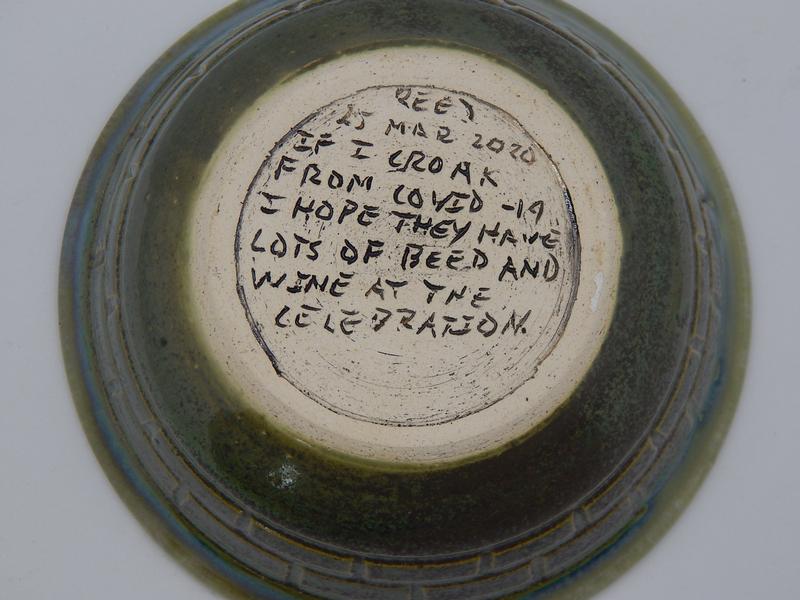 REED
25 MAR 2020
IF I CROAK
FROM COVID-19
I HOPE THEY HAVE
LOTS OF BEED AND
WINE AT THE
CELEBRATION.